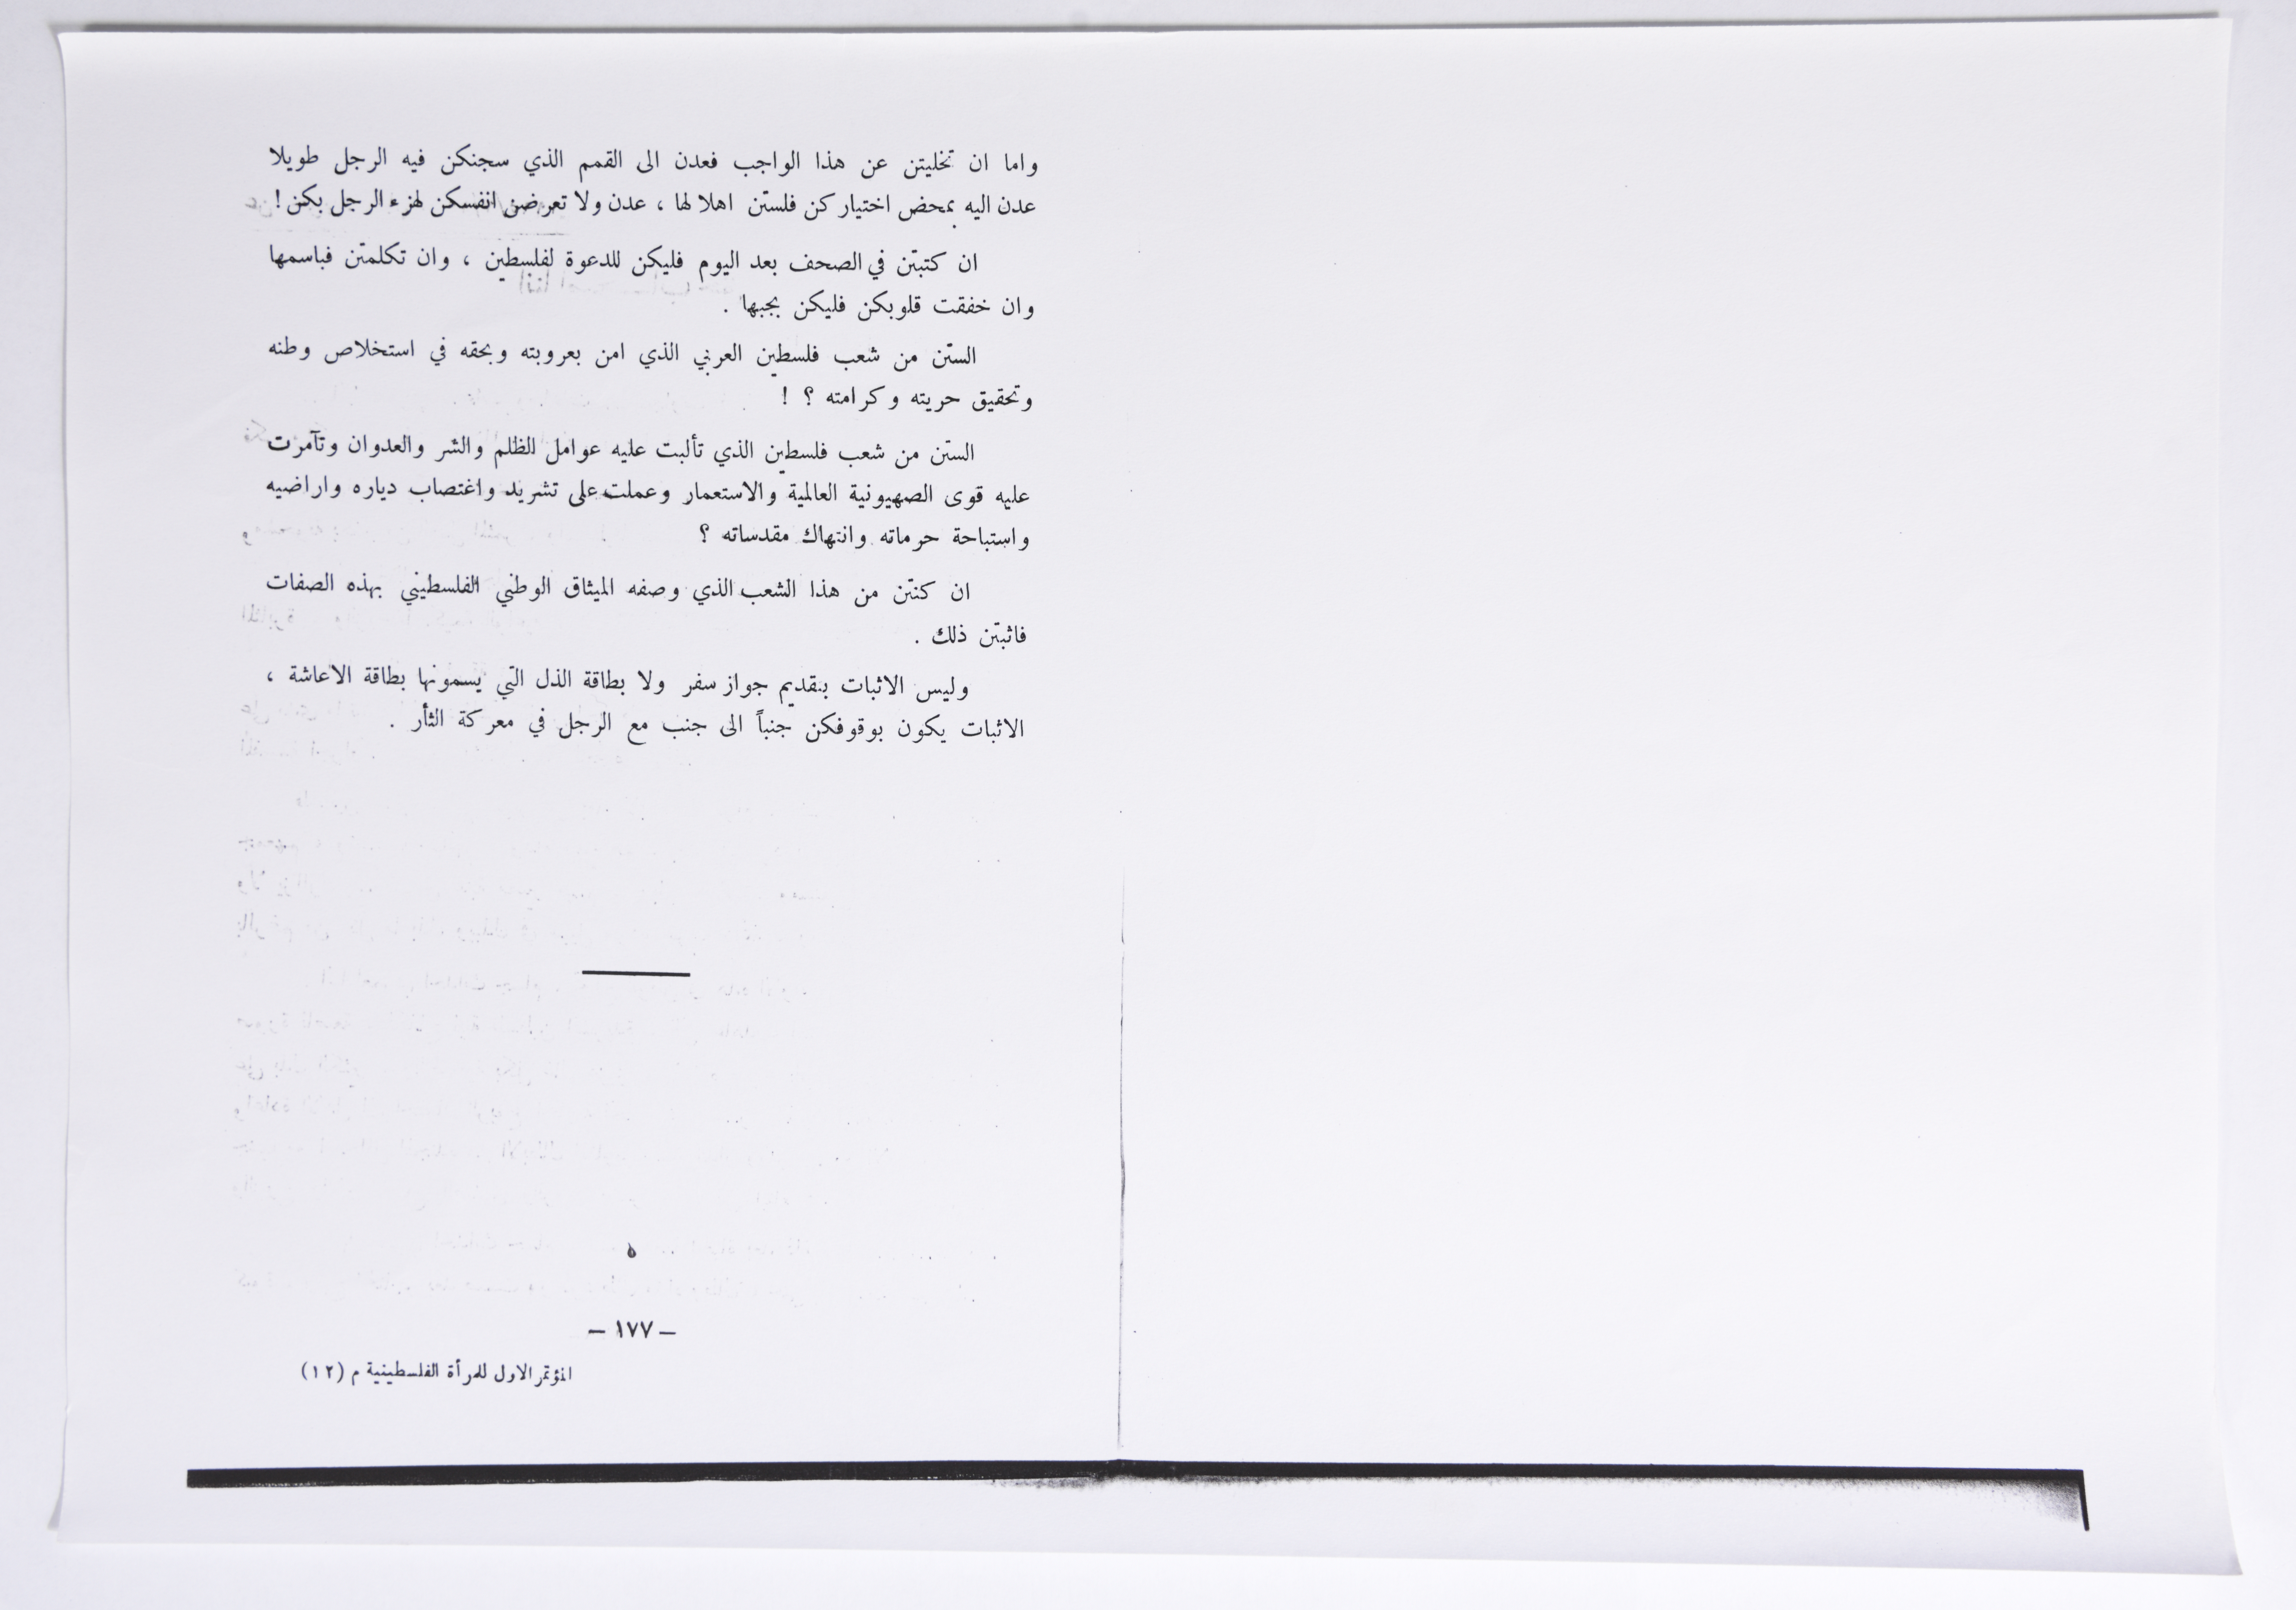 واما ان تخليتن عن هذا الواجب فعدن الى القمم الذي سجنكن فيه الرجل طويلا
عدن اليه بمحض اختياركن فلستن اهلا لها ، عدن ولا تعرضن انفسكن لهزء الرجل بكن !
ان كتبتن في الصحف بعد اليوم فليكن للدعوة لفلسطين ، وان تكلمتن فباسمها
وان خفقت قلوبكن فليكن بحبها .
الستن من شعب فلسطين العربي الذي امن بعروبته وبحقه في استخلاص وطنه
وتحقيق حريته وكرامته ؟ !
الستن من شعب فلسطين الذي تألبت عليه عوامل الظلم والشر والعدوان وتآمرت
عليه قوى الصهيونية العالمية والاستعمار وعملت على تشريد واغتصاب دياره واراضيه
واستباحة حرماته وانتهاك مقدساته ؟
ان كنتن من هذا الشعب الذي وصفه الميثاق الوطني الفلسطيني بهذه الصفات
فاثبتن ذلك .
وليس الاثبات بتقديم جواز سفر ولا بطاقة الذل التي يسمونها بطاقة الاعاشة ،
الاثبات يكون بوقوفكن جنباً الى جنب مع الرجل في معركة الثأر .
– ١٧٧ –
المؤتمر الاول للمرأة الفلسطينية م (١٢)